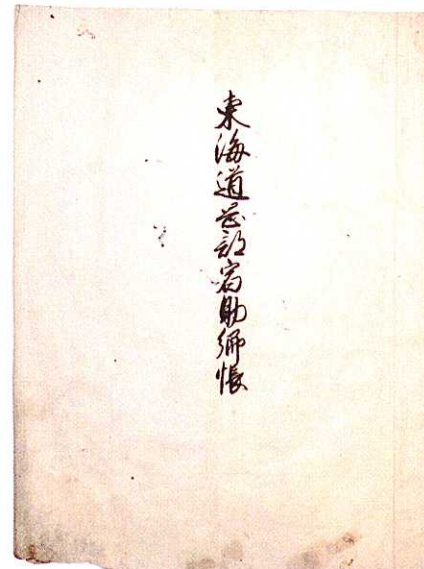 東海道岡部宿助郷帳